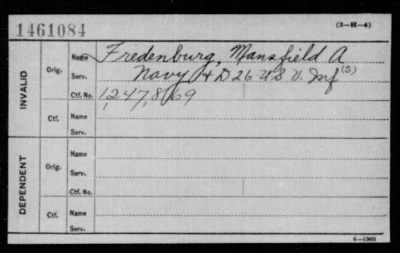 1461084
(3—H—4)
INVALID
Orig. Name Fredenburg, Mansfield A
Serv. Navy & D 26 U S V. Inf (S)
Ctf. No. 1,247,869
Ctf. Name
Serv.
DEPENDENT
Orig. Name
Serv.
Ctf. No.
Ctf. Name
Serv.